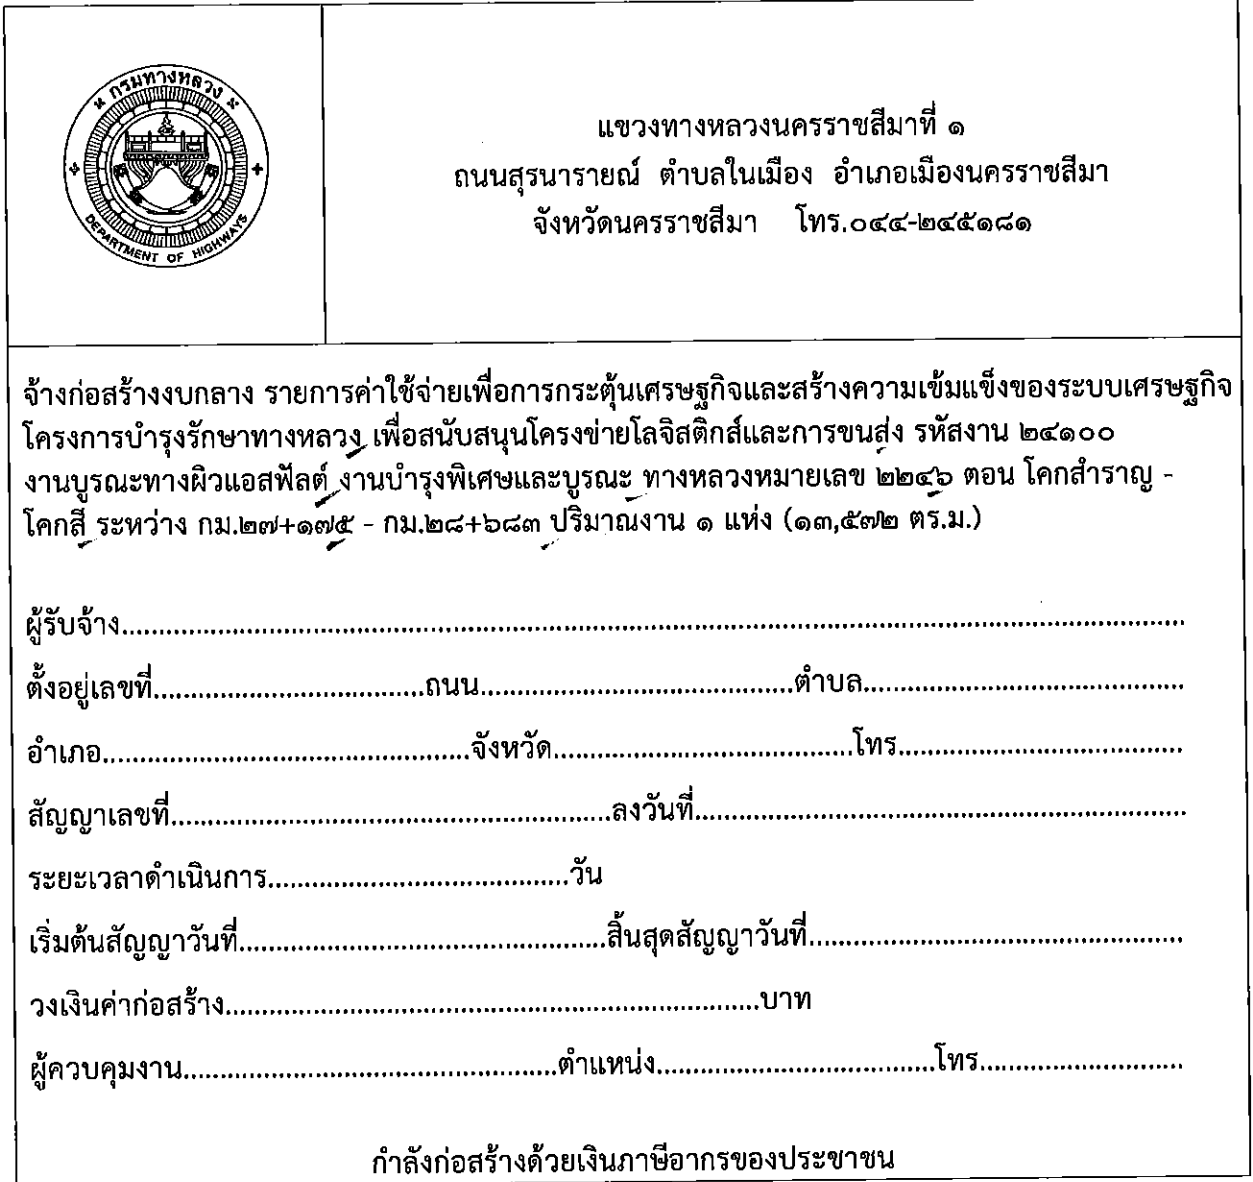 กรมทางหลวง
DEPARTMENT OF HIGHWAYS
แขวงทางหลวงนครราชสีมาที่ ๑
ถนนสุรนารายณ์ ตำบลในเมือง อำเภอเมืองนครราชสีมา
จังหวัดนครราชสีมา โทร.๐๔๔-๒๔๕๑๘๑
จ้างก่อสร้างงบกลาง รายการค่าใช้จ่ายเพื่อการกระตุ้นเศรษฐกิจและสร้างความเข้มแข็งของระบบเศรษฐกิจ
โครงการบำรุงรักษาทางหลวง เพื่อสนับสนุนโครงข่ายโลจิสติกส์และการขนส่ง รหัสงาน ๒๔๑๐๐
งานบูรณะทางผิวแอสฟัลต์ งานบำรุงพิเศษและบูรณะ ทางหลวงหมายเลข ๒๒๔๖ ตอน โคกสำราญ -
โคกสี ระหว่าง กม.๒๗+๑๗๕ - กม.๒๘+๖๘๓ ปริมาณงาน ๑ แห่ง (๑๓,๕๗๒ ตร.ม.)
ผู้รับจ้าง........................................................................................................
ตั้งอยู่เลขที่...................................ถนน........................................ตำบล.........................................
อำเภอ...............................................จังหวัด......................................โทร....................................
สัญญาเลขที่........................................................ลงวันที่...............................................................
ระยะเวลาดำเนินการ......................................วัน
เริ่มต้นสัญญาวันที่...............................................สิ้นสุดสัญญาวันที่................................................
วงเงินค่าก่อสร้าง....................................................................บาท
ผู้ควบคุมงาน................................................ตำแหน่ง...................................โทร..........................
กำลังก่อสร้างด้วยเงินภาษีอากรของประชาชน